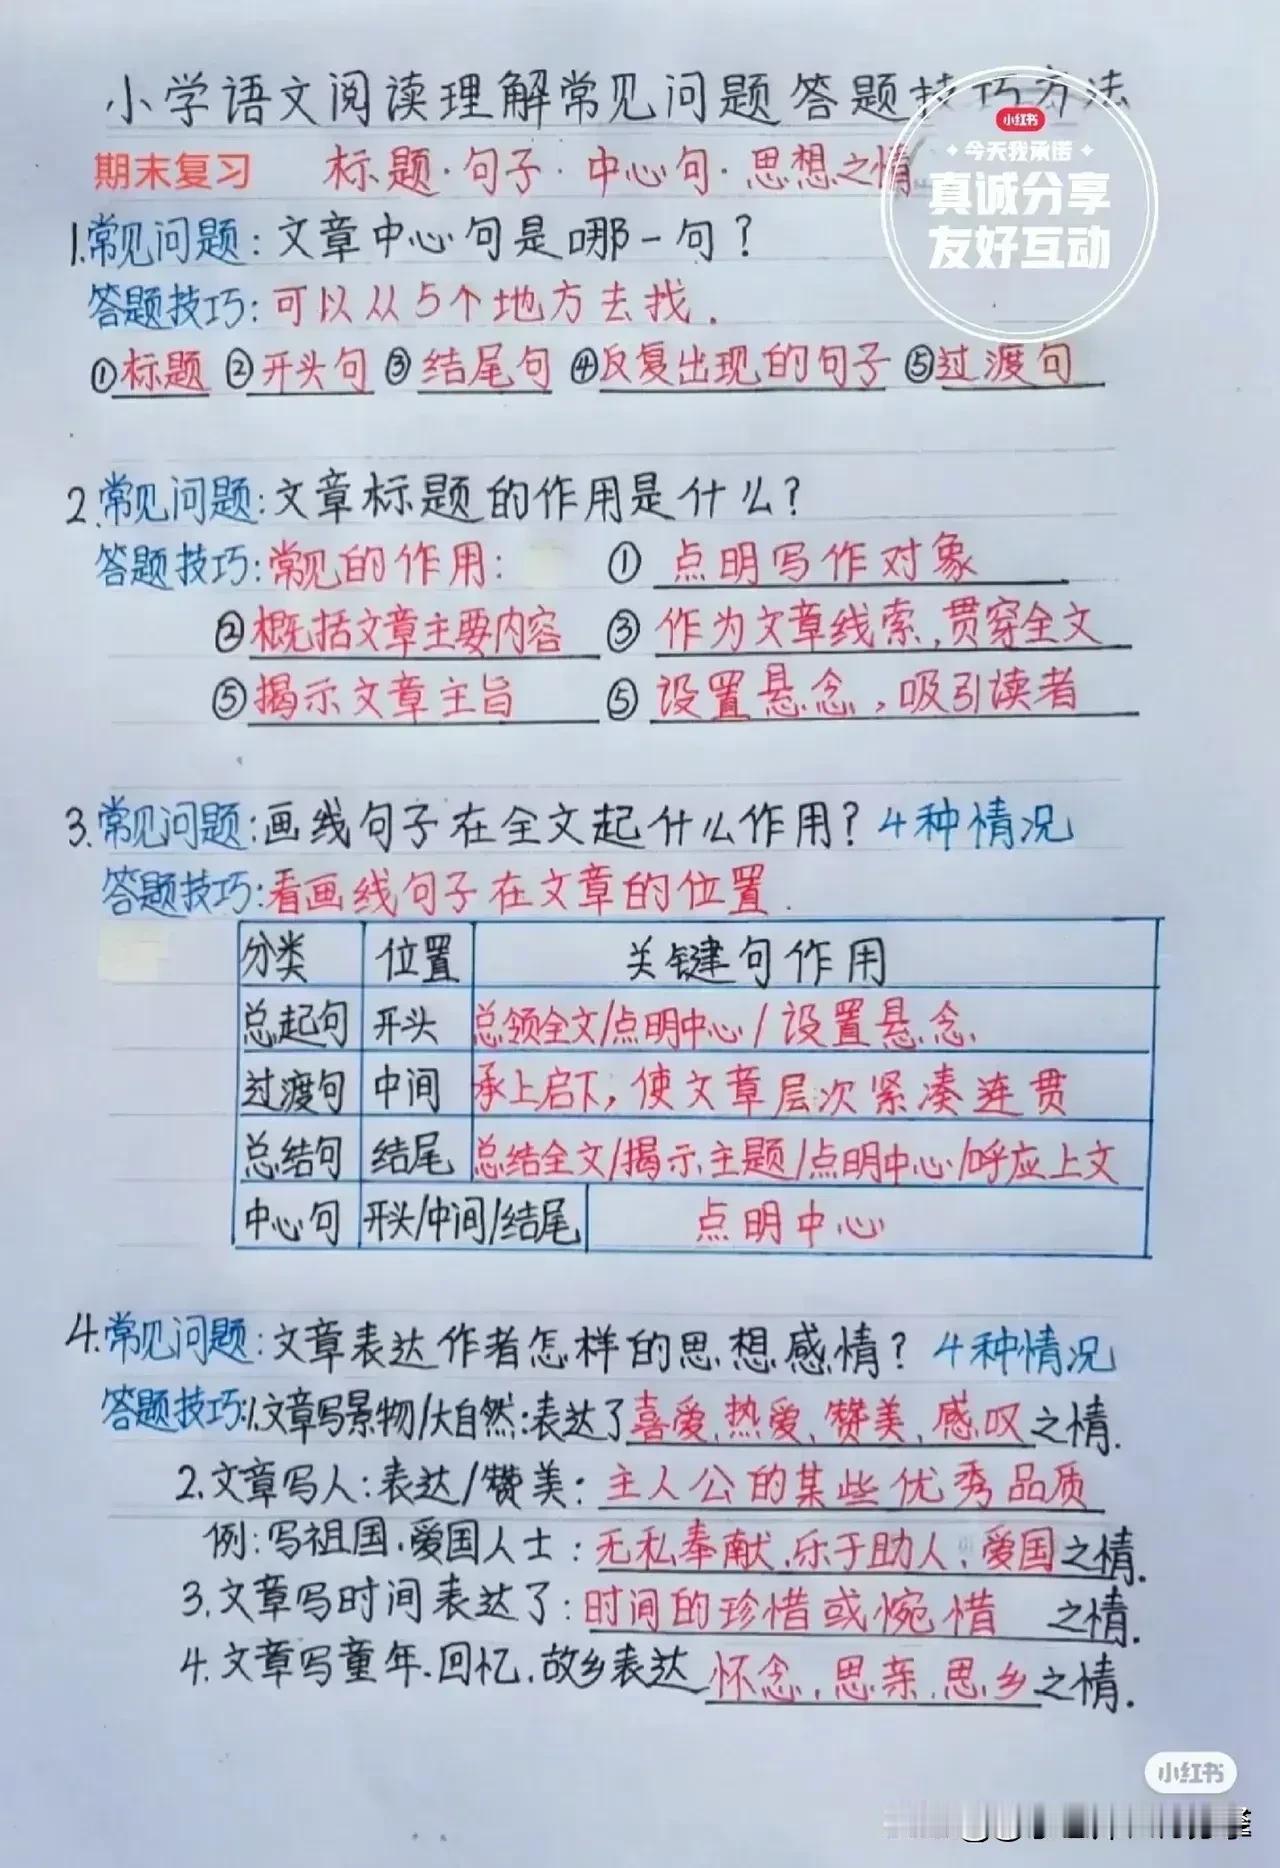 小学语文阅读理解常见问题答题技巧方法
小红书
今天我承诺
真诚分享
友好互动
期末复习 标题·句子·中心句·思想之情
1.常见问题:文章中心句是哪一句?
答题技巧:可以从5个地方去找.
①标题 ②开头句 ③结尾句 ④反复出现的句子 ⑤过渡句
2.常见问题:文章标题的作用是什么?
答题技巧:常见的作用: ①点明写作对象
②概括文章主要内容 ③作为文章线索,贯穿全文
⑤揭示文章主旨 ⑤设置悬念,吸引读者
3.常见问题:画线句子在全文起什么作用?4种情况
答题技巧:看画线句子在文章的位置.
分类 位置 关键句作用
总起句 开头 总领全文/点明中心/设置悬念.
过渡句 中间 承上启下,使文章层次紧凑连贯
总结句 结尾 总结全文/揭示主题/点明中心/呼应上文
中心句 开头/中间/结尾 点明中心
4.常见问题:文章表达作者怎样的思想感情?4种情况
答题技巧:1.文章写景物/大自然:表达了喜爱、热爱、赞美、感叹之情.
2.文章写人:表达/赞美:主人公的某些优秀品质
例:写祖国、爱国人士:无私奉献、乐于助人、爱国之情.
3.文章写时间表达了:时间的珍惜或惋惜 之情.
4.文章写童年、回忆、故乡表达 怀念、思亲、思乡之情.
小红书